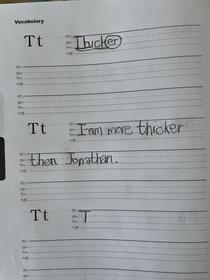 Vocabulary
Tt Thicker
Tt I am more thicker
then Jonathan.
Tt T